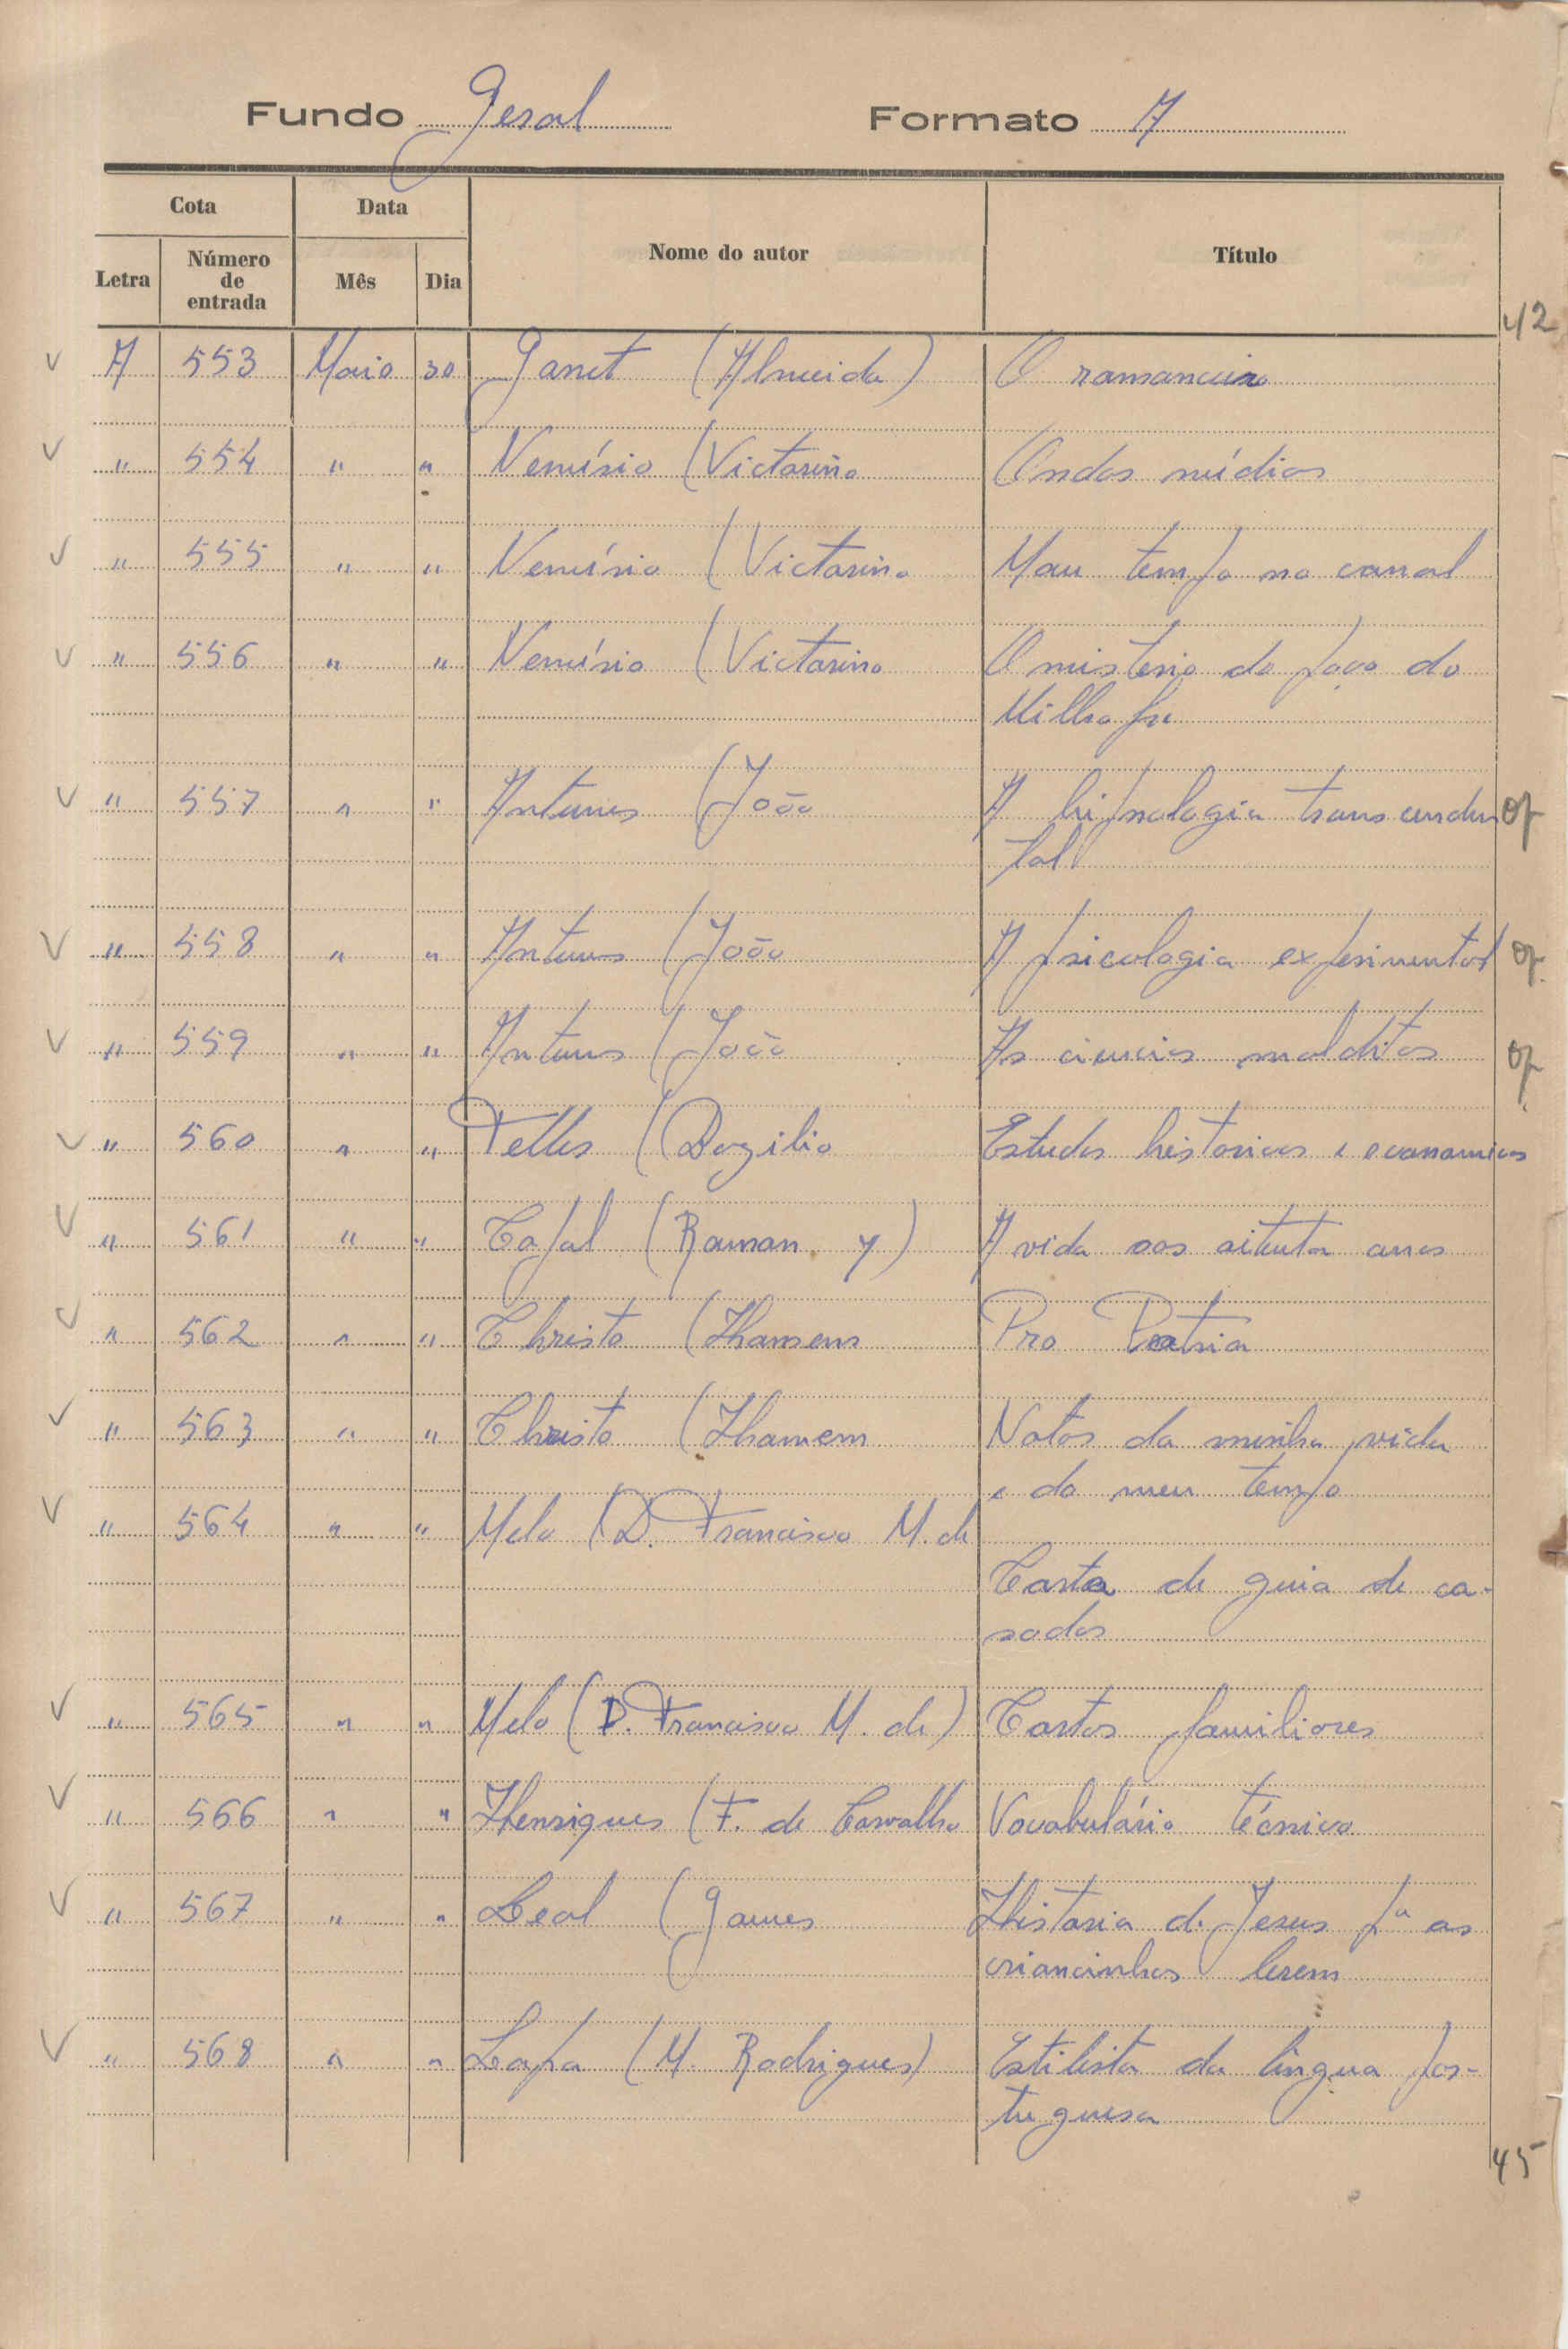 Fundo Geral Formato A
Cota Data Nome do autor Título
Letra Número de entrada Mês Dia
42
v A 553 Maio 30 Garret (Almeida) O romanceiro
v " 554 " " Nemésio (Victorino Ondas médias
v " 555 " " Nemésio (Victorino Mau tempo no canal
v " 556 " " Nemésio (Victorino O misterio do paço do
Milhafre
v " 557 " " Antunes (João A hipnologia transcenden op
tal
v " 558 " " Antunes (João A psicologia experimental op
v " 559 " " Antunes (João As ciencias malditas op
v " 560 " " Telles (Bazilio Estudos historicos e economicos
v " 561 " " Cajal (Ramon y) A vida aos oitenta anos
v " 562 " " Christo (Homem Pro Patria
v " 563 " " Christo (Homem Notas da minha vida
e do meu tempo
v " 564 " " Melo (D. Francisco M. de
Carta de guia de ca-
sados
v " 565 " " Melo (D. Francisco M. de) Cartas familiares
v " 566 " " Henriques (F. de Carvalho Vocabulário técnico
v " 567 " " Leal (Gomes Historia de Jesus pª as
criancinhas lerem
v " 568 " " Lapa (M. Rodrigues) Estilista da lingua por-
tuguesa
45